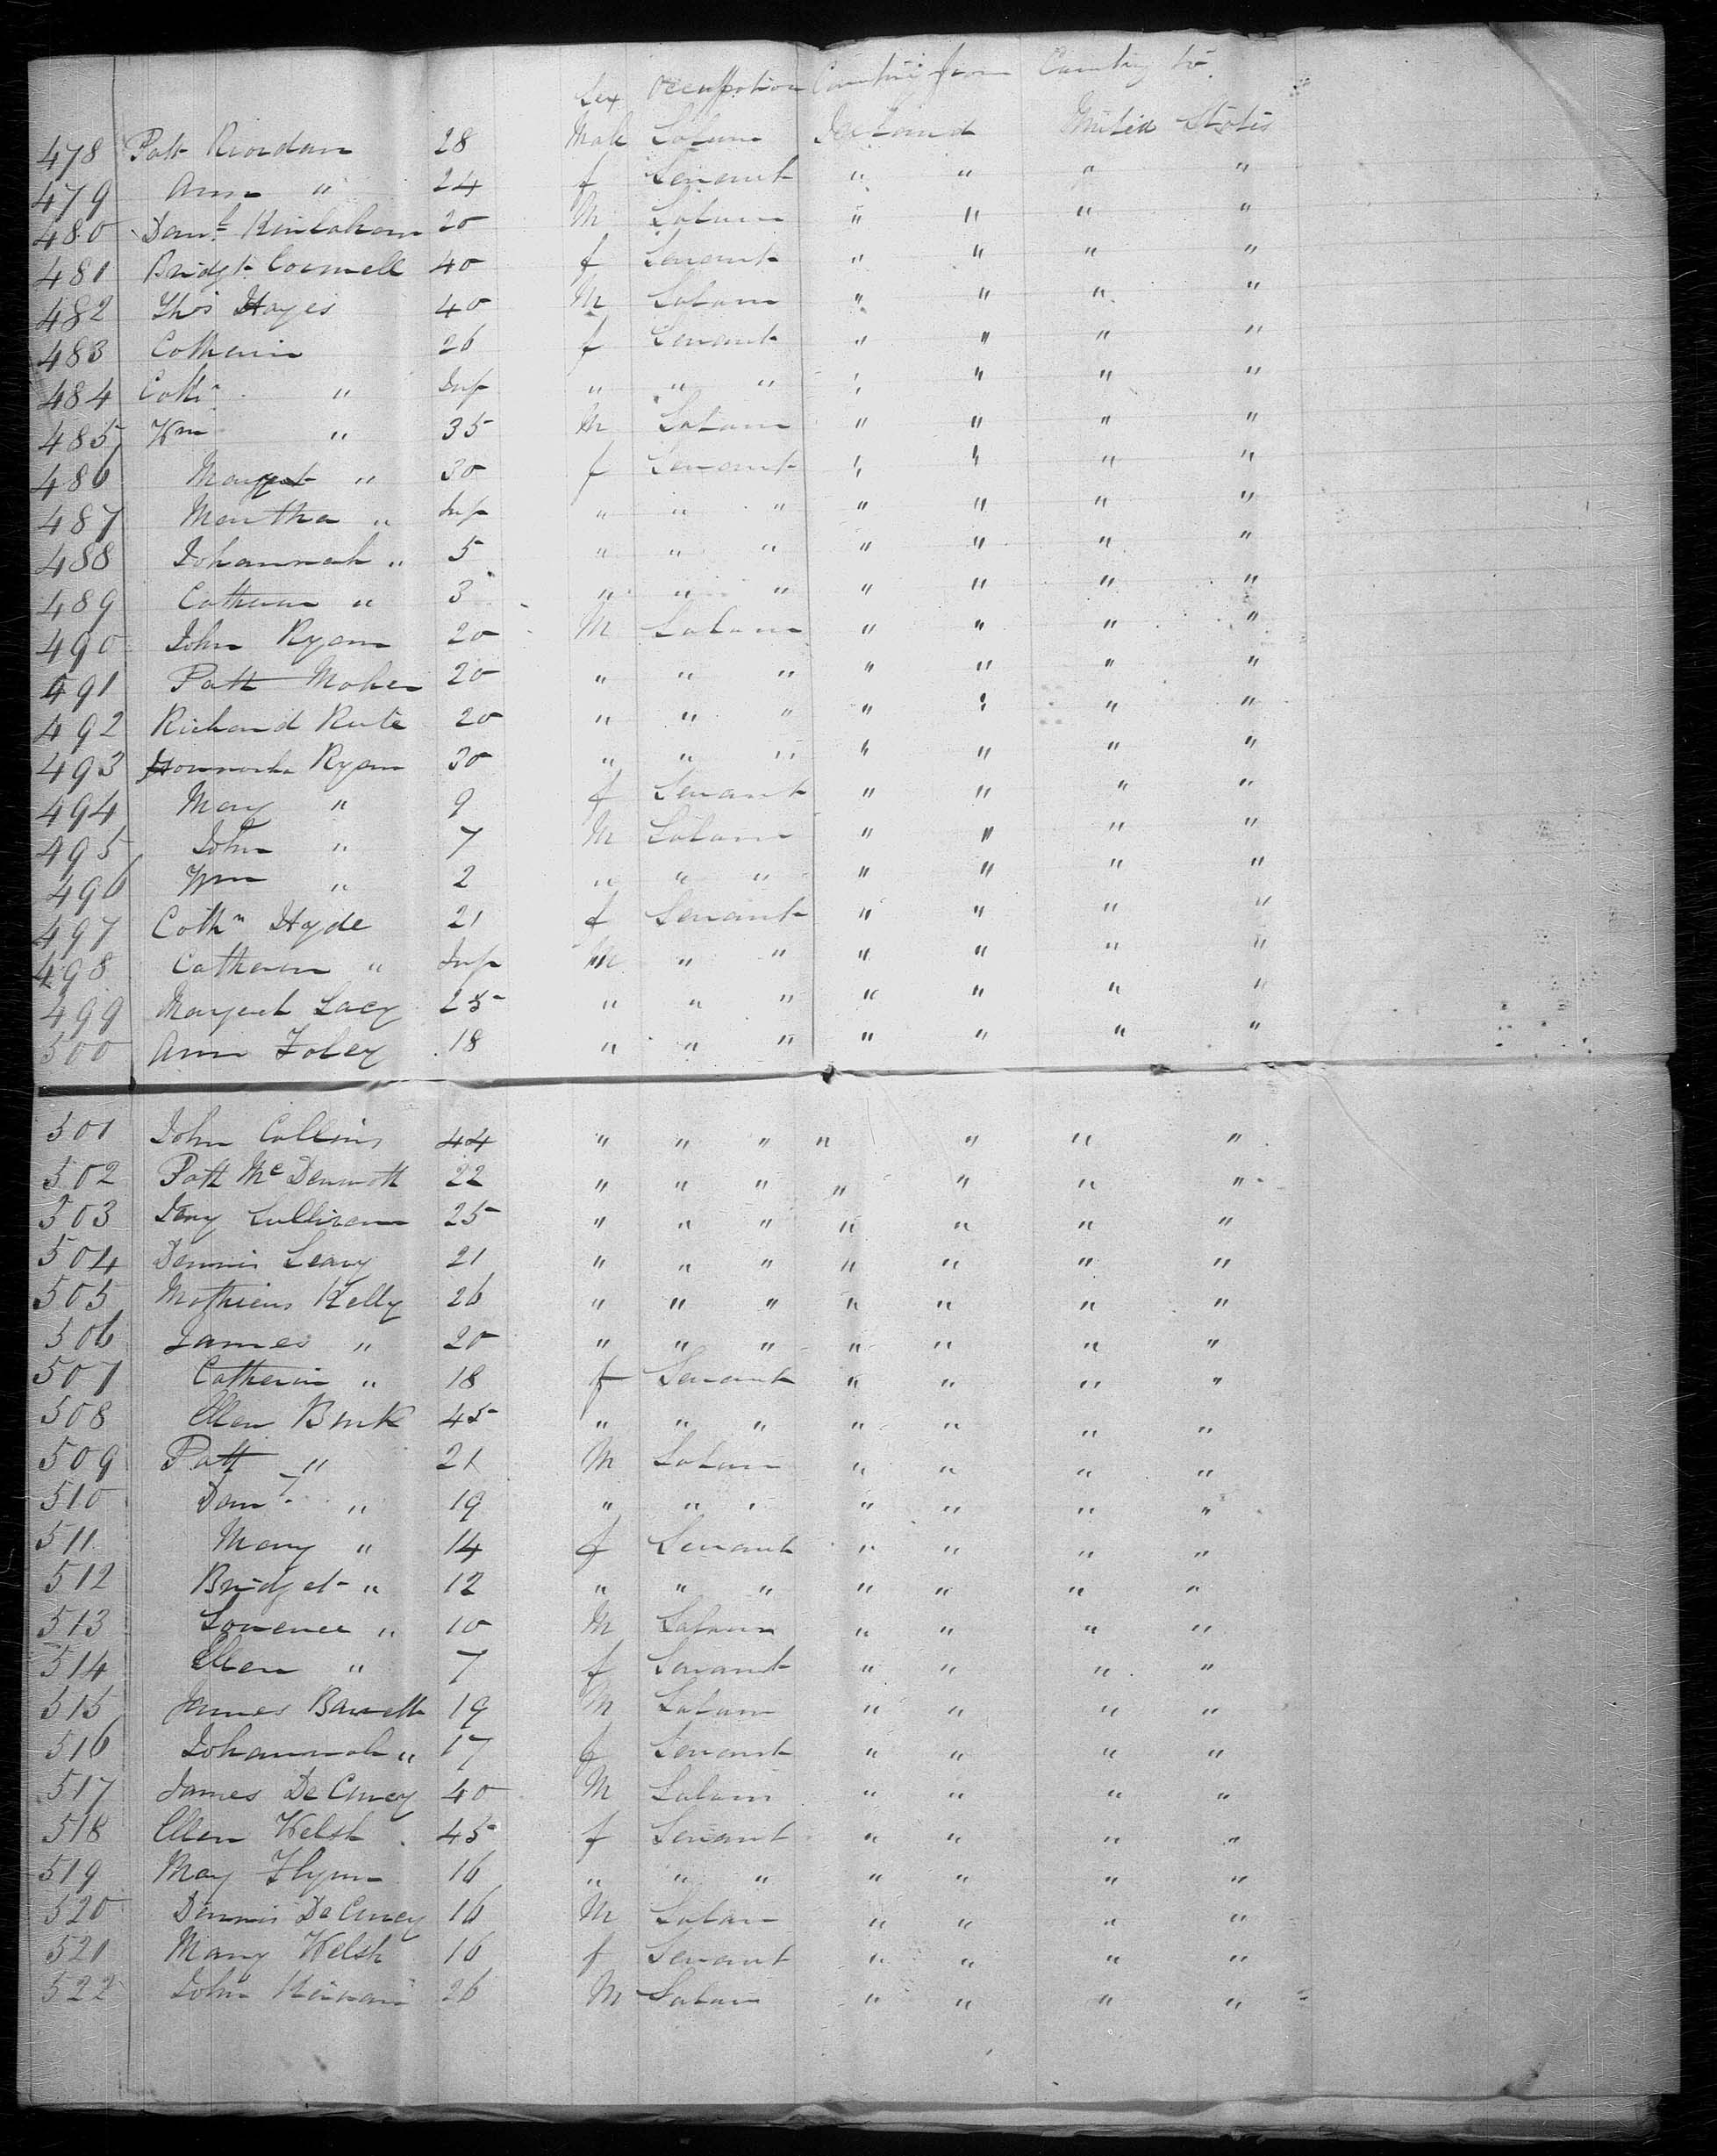 Sex Occupation Country from Country to
478 Patt Riordan 28 Male Labourer Ireland United States
479 Ann " 24 f Servant " " " "
480 Danl 20 M Labourer " " " "
481 Bridgt Connell 40 f Servant " " " "
482 Thos Hayes 40 M Labourer " " " "
483 Catherin 26 f Servant " " " "
484 Cath " Inf " " " " " " "
485 Wm " 35 M Labourer " " " "
486 Margret " 30 f Servant " " " "
487 Martha " Inf " " " " " " "
488 Johannah " 5 " " " " " " "
489 Catherin " 3 " " " " " " "
490 John Ryan 20 M Labourer " " " "
491 Patt Maher 20 " " " " " " "
492 Richard 20 " " " " " " "
493 Honnorah Ryan 30 " " " " " " "
494 Mary " 9 f Servant " " " "
495 John " 7 M Labourer " " " "
496 Wm " 2 " " " " " " "
497 Cathn Hyde 21 f Servant " " " "
498 Catherin " Inf M " " " " " "
499 Margret Lacy 25 " " " " " " "
500 Ann Foley 18 " " " " " " "
501 John Collins 44 " " " " " " "
502 Patt McDermott 22 " " " " " " "
503 Sullivan 25 " " " " " " "
504 Dennis Leary 21 " " " " " " "
505 Kelly 26 " " " " " " "
506 James " 20 " " " " " " "
507 Catherin " 18 f Servant " " " "
508 Ellen Burk 45 " " " " " " "
509 Patt " 21 M Labourer " " " "
510 Danl " 19 " " " " " " "
511 Mary " 14 f Servant " " " "
512 Bridget " 12 " " " " " " "
513 Lawrence " 10 M Labourer " " " "
514 Ellen " 7 f Servant " " " "
515 James Barrett 19 M Labourer " " " "
516 Johannah " 17 f Servant " " " "
517 James De Curcy 40 M Labourer " " " "
518 Ellen Welsh 45 f Servant " " " "
519 May Flynn 16 " " " " " " "
520 Dennis De Curcy 16 M Labourer " " " "
521 Mary Welsh 16 f Servant " " " "
522 John 26 M Labourer " " " "